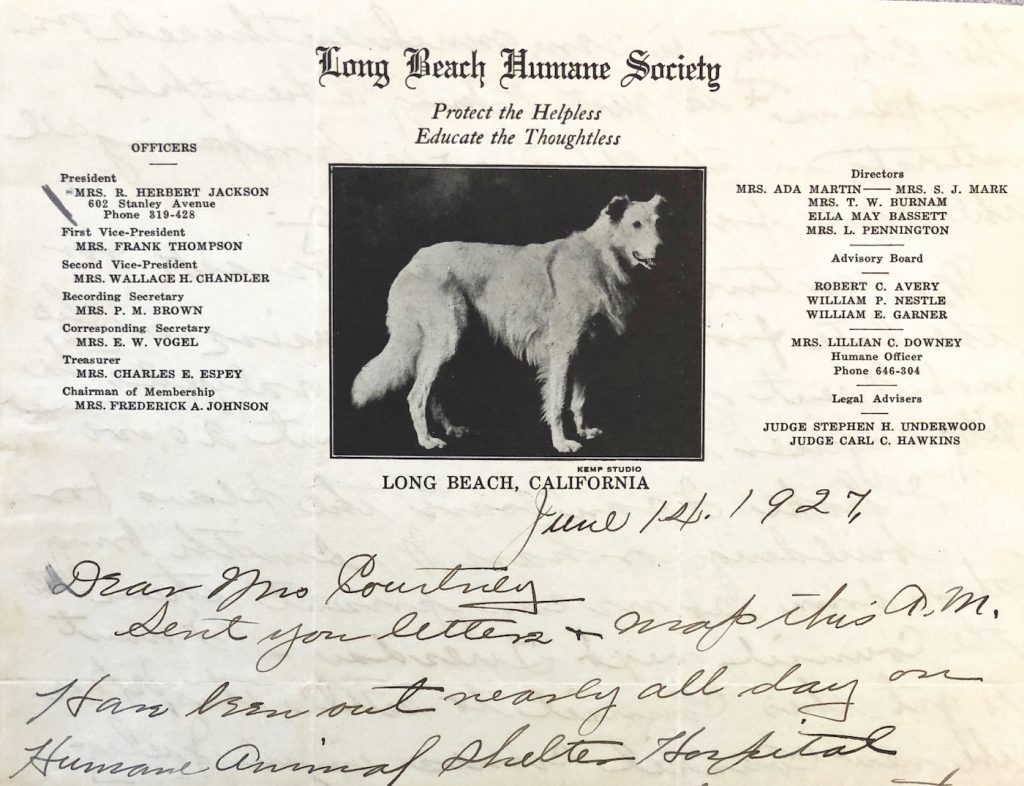 Long Beach Humane Society
Protect the Helpless
Educate the Thoughtless
OFFICERS
President
MRS. R. HERBERT JACKSON
602 Stanley Avenue
Phone 319-428
First Vice-President
MRS. FRANK THOMPSON
Second Vice-President
MRS. WALLACE H. CHANDLER
Recording Secretary
MRS. P. M. BROWN
Corresponding Secretary
MRS. E. W. VOGEL
Treasurer
MRS. CHARLES E. ESPEY
Chairman of Membership
MRS. FREDERICK A. JOHNSON
Directors
MRS. ADA MARTIN — MRS. S. J. MARK
MRS. T. W. BURNAM
ELLA MAY BASSETT
MRS. L. PENNINGTON
Advisory Board
ROBERT C. AVERY
WILLIAM P. NESTLE
WILLIAM E. GARNER
MRS. LILLIAN C. DOWNEY
Humane Officer
Phone 646-304
Legal Advisers
JUDGE STEPHEN H. UNDERWOOD
JUDGE CARL C. HAWKINS
KEMP STUDIO
LONG BEACH, CALIFORNIA
June 14. 1927,
Dear Mrs Courtney
Sent you letters & map this A.M.
Have been out nearly all day on
Humane Animal Shelter Hospital